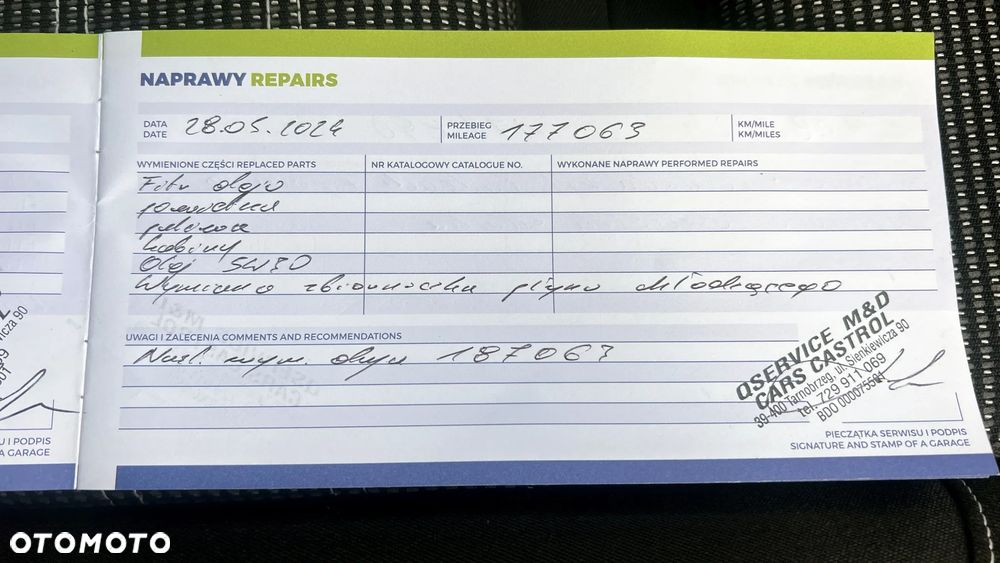 NAPRAWY REPAIRS
DATA DATE 28.05.2024 PRZEBIEG MILEAGE 177063 KM/MILE KM/MILES
WYMIENIONE CZĘŚCI REPLACED PARTS NR KATALOGOWY CATALOGUE NO. WYKONANE NAPRAWY PERFORMED REPAIRS
Filtr oleju
powietrza
paliwa
kabiny
Olej 5W30
Wymiana zbiorniczka płynu chłodzącego
UWAGI I ZALECENIA COMMENTS AND RECOMMENDATIONS
Nast. wym. oleju 187063
QSERVICE M&D
CARS CASTROL
39-400 Tarnobrzeg, ul. Sienkiewicza 90
tel. 729 911 069
BDO 000075501
PIECZĄTKA SERWISU I PODPIS
SIGNATURE AND STAMP OF A GARAGE
wicza 90
U I PODPIS
A GARAGE
OTOMOTO